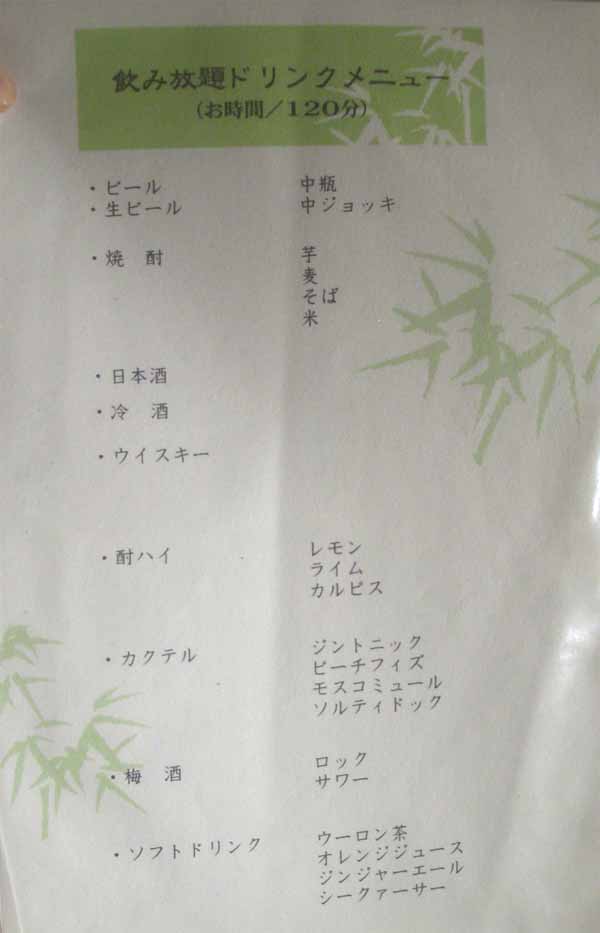 飲み放題ドリンクメニュー
(お時間／120分)
・ビール 中瓶
・生ビール 中ジョッキ
・焼 酎 芋
麦
そば
米
・日本酒
・冷 酒
・ウイスキー
・酎ハイ レモン
ライム
カルピス
・カクテル ジントニック
ピーチフィズ
モスコミュール
ソルティドック
・梅 酒 ロック
サワー
・ソフトドリンク ウーロン茶
オレンジジュース
ジンジャーエール
シークァーサー